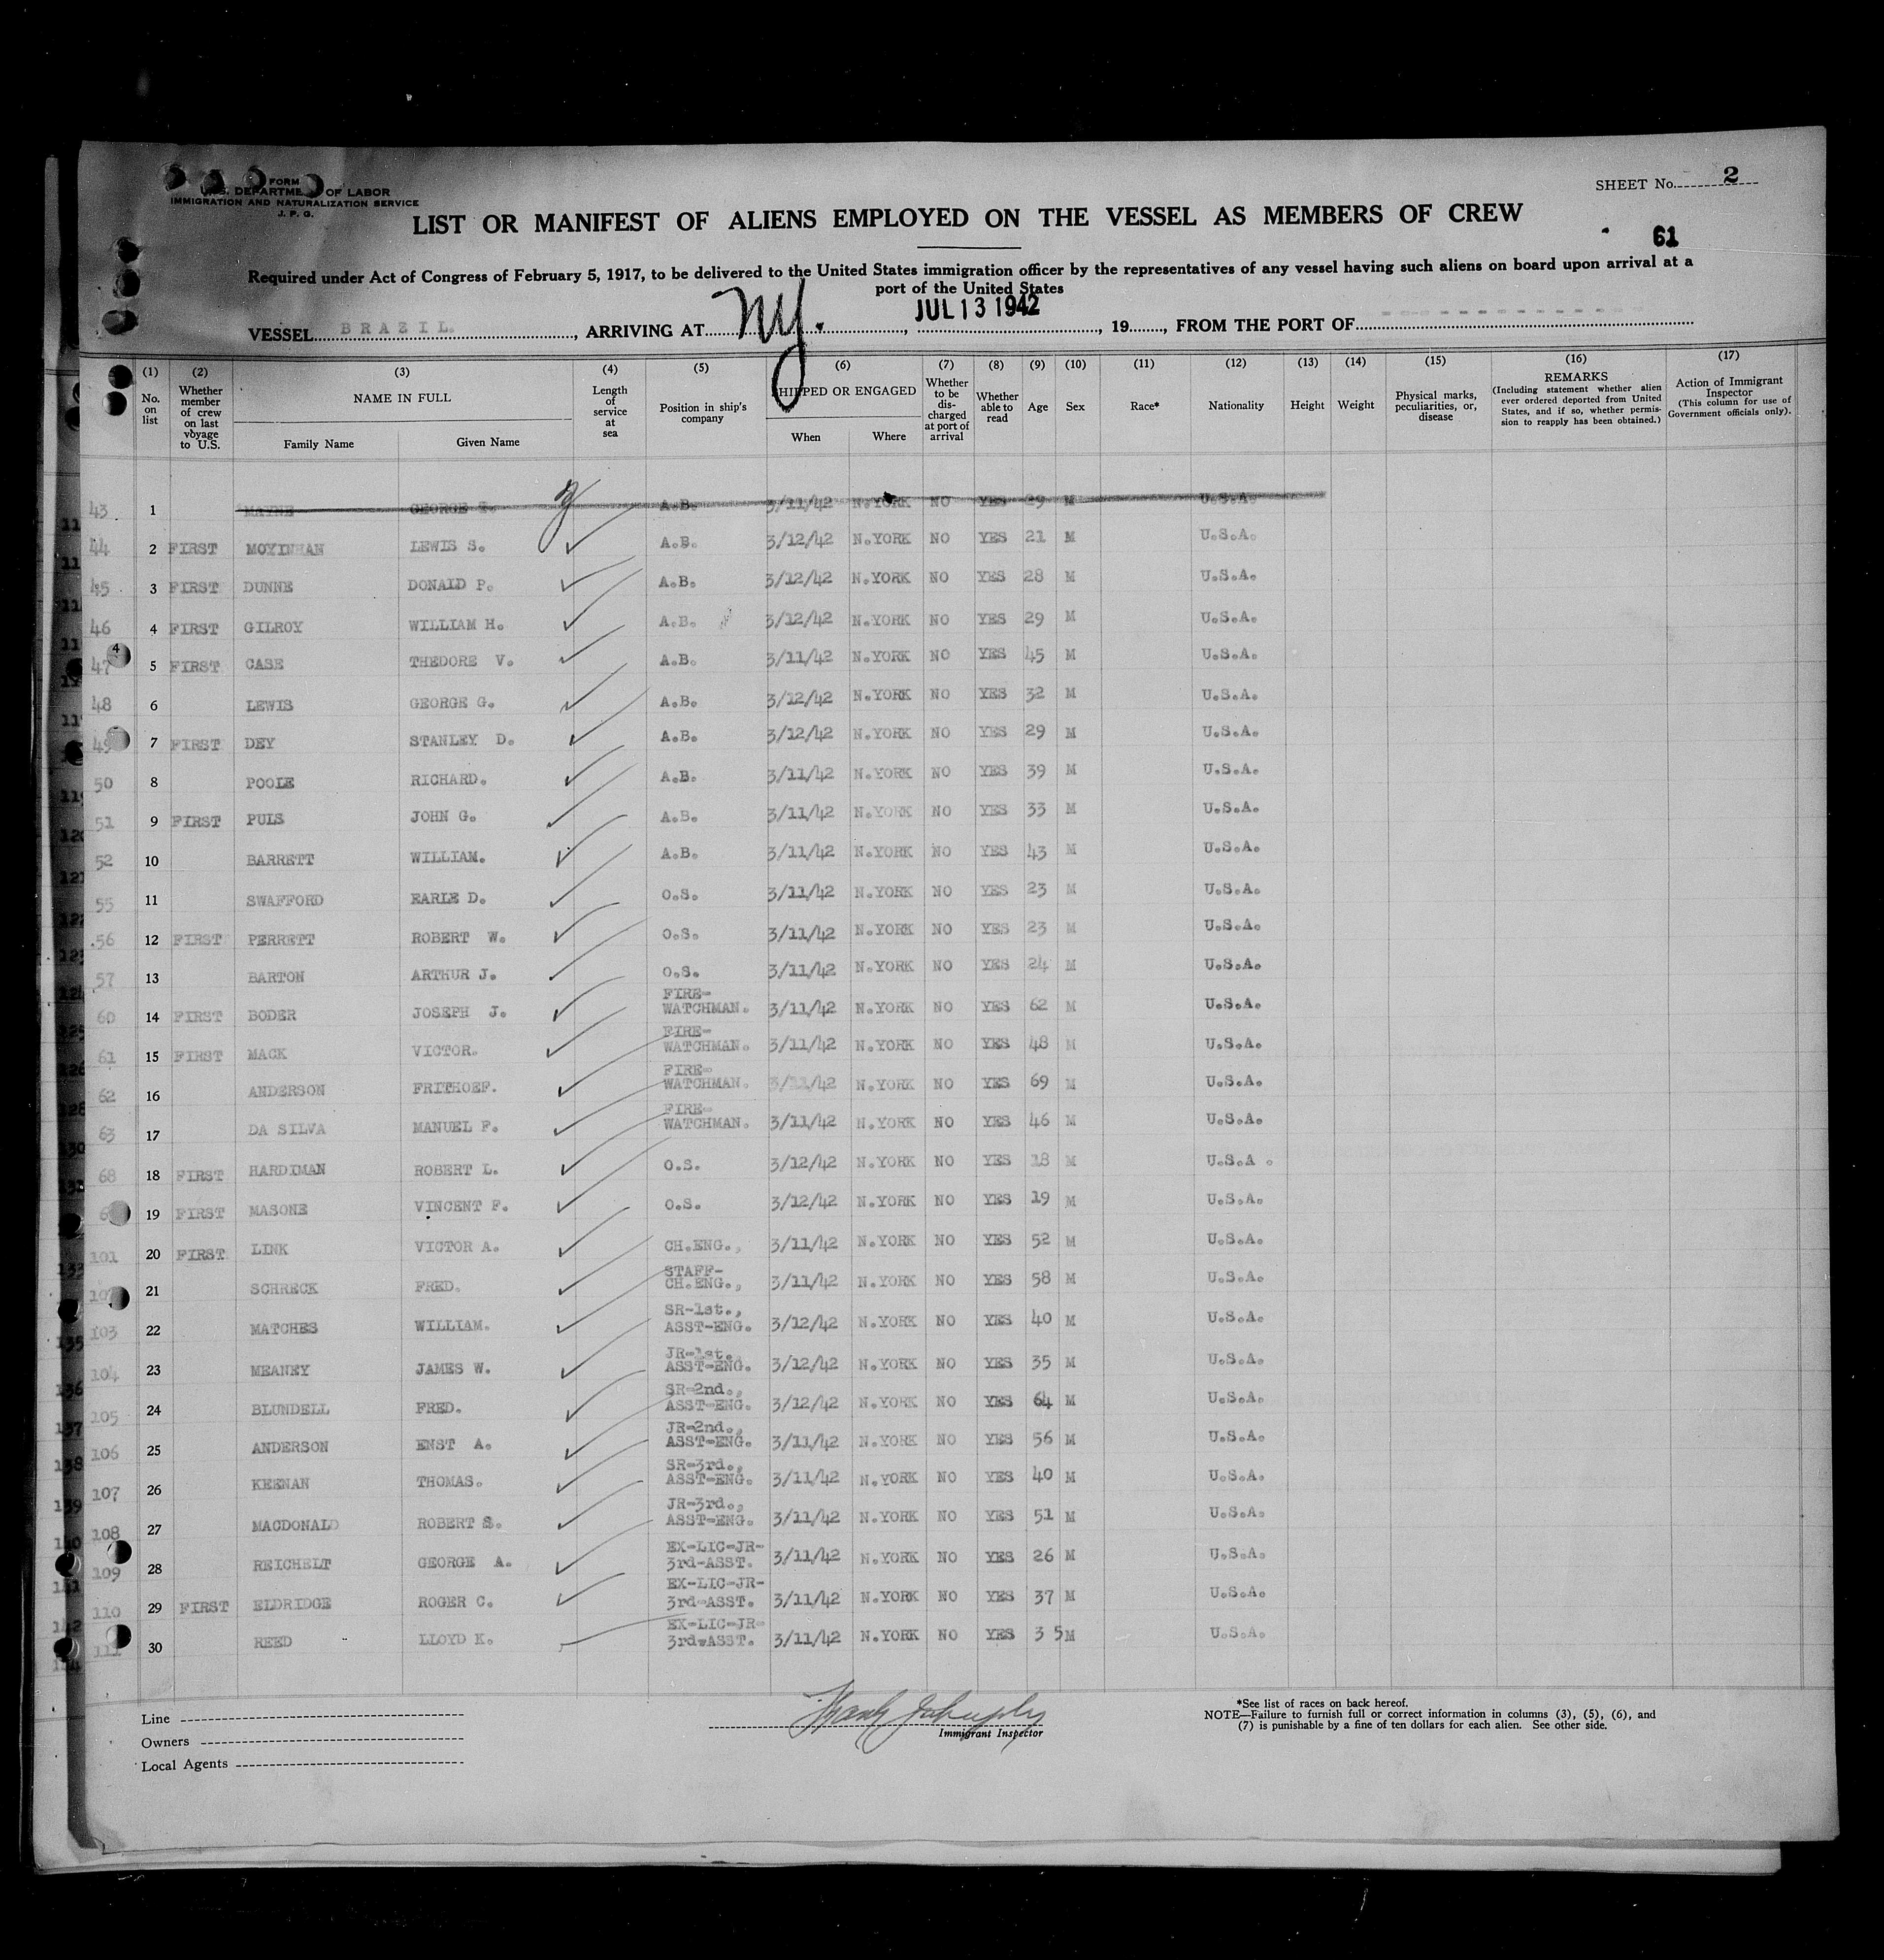 FORM
U.S. DEPARTMENT OF LABOR
IMMIGRATION AND NATURALIZATION SERVICE
J. P. G.
SHEET No. 2
LIST OR MANIFEST OF ALIENS EMPLOYED ON THE VESSEL AS MEMBERS OF CREW
61
Required under Act of Congress of February 5, 1917, to be delivered to the United States immigration officer by the representatives of any vessel having such aliens on board upon arrival at a
port of the United States
VESSEL BRAZIL. , ARRIVING AT NY. , JUL 13 1942 , 19 , FROM THE PORT OF
(1) (2) (3) (4) (5) (6) (7) (8) (9) (10) (11) (12) (13) (14) (15) (16) (17)
No. on list
Whether member of crew on last voyage to U.S.
NAME IN FULL
Family Name
Given Name
Length of service at sea
Position in ship's company
SHIPPED OR ENGAGED
When
Where
Whether to be discharged at port of arrival
Whether able to read
Age
Sex
Race*
Nationality
Height
Weight
Physical marks, peculiarities, or, disease
REMARKS
(Including statement whether alien ever ordered deported from United States, and if so, whether permission to reapply has been obtained.)
Action of Immigrant Inspector
(This column for use of Government officials only).
43 1 MAYNE GEORGE T. A.B. 3/11/42 N.YORK NO YES 29 M U.S.A.
44 2 FIRST MOYINHAN LEWIS S. A.B. 3/12/42 N.YORK NO YES 21 M U.S.A.
45 3 FIRST DUNNE DONALD P. A.B. 3/12/42 N.YORK NO YES 28 M U.S.A.
46 4 FIRST GILROY WILLIAM H. A.B. 3/12/42 N.YORK NO YES 29 M U.S.A.
47 5 FIRST CASE THEDORE V. A.B. 3/11/42 N.YORK NO YES 45 M U.S.A.
48 6 LEWIS GEORGE G. A.B. 3/12/42 N.YORK NO YES 32 M U.S.A.
49 7 FIRST DEY STANLEY D. A.B. 3/12/42 N.YORK NO YES 29 M U.S.A.
50 8 POOLE RICHARD. A.B. 3/11/42 N.YORK NO YES 39 M U.S.A.
51 9 FIRST PULS JOHN G. A.B. 3/11/42 N.YORK NO YES 33 M U.S.A.
52 10 BARRETT WILLIAM. A.B. 3/11/42 N.YORK NO YES 43 M U.S.A.
55 11 SWAFFORD EARLE D. O.S. 3/11/42 N.YORK NO YES 23 M U.S.A.
56 12 FIRST PERRETT ROBERT W. O.S. 3/11/42 N.YORK NO YES 23 M U.S.A.
57 13 BARTON ARTHUR J. O.S. 3/11/42 N.YORK NO YES 24 M U.S.A.
60 14 FIRST BODER JOSEPH J. FIRE-WATCHMAN. 3/11/42 N.YORK NO YES 62 M U.S.A.
61 15 FIRST MACK VICTOR. FIRE-WATCHMAN. 3/11/42 N.YORK NO YES 48 M U.S.A.
62 16 ANDERSON FRITHOEF. FIRE-WATCHMAN. 3/11/42 N.YORK NO YES 69 M U.S.A.
63 17 DA SILVA MANUEL F. FIRE-WATCHMAN. 3/11/42 N.YORK NO YES 46 M U.S.A.
68 18 FIRST HARDIMAN ROBERT L. O.S. 3/12/42 N.YORK NO YES 18 M U.S.A.
19 FIRST MASONE VINCENT F. O.S. 3/12/42 N.YORK NO YES 19 M U.S.A.
101 20 FIRST LINK VICTOR A. CH.ENG., 3/11/42 N.YORK NO YES 52 M U.S.A.
21 SCHRECK FRED. STAFF-CH.ENG., 3/11/42 N.YORK NO YES 58 M U.S.A.
103 22 MATCHES WILLIAM. SR-1st., ASST-ENG. 3/12/42 N.YORK NO YES 40 M U.S.A.
104 23 MEANEY JAMES W. JR-1st. ASST-ENG. 3/12/42 N.YORK NO YES 35 M U.S.A.
105 24 BLUNDELL FRED. SR-2nd., ASST-ENG. 3/12/42 N.YORK NO YES 64 M U.S.A.
106 25 ANDERSON ENST A. JR-2nd., ASST-ENG. 3/11/42 N.YORK NO YES 56 M U.S.A.
107 26 KEENAN THOMAS. SR-3rd., ASST-ENG. 3/11/42 N.YORK NO YES 40 M U.S.A.
108 27 MACDONALD ROBERT S. JR-3rd., ASST-ENG. 3/11/42 N.YORK NO YES 51 M U.S.A.
109 28 REICHELT GEORGE A. EX-LIC-JR-3rd-ASST. 3/11/42 N.YORK NO YES 26 M U.S.A.
110 29 FIRST ELDRIDGE ROGER C. EX-LIC-JR-3rd-ASST. 3/11/42 N.YORK NO YES 37 M U.S.A.
111 30 REED LLOYD K. EX-LIC-JR-3rd-ASST. 3/11/42 N.YORK NO YES 3 5 M U.S.A.
Line
Owners
Local Agents
Immigrant Inspector
*See list of races on back hereof.
NOTE—Failure to furnish full or correct information in columns (3), (5), (6), and
(7) is punishable by a fine of ten dollars for each alien. See other side.